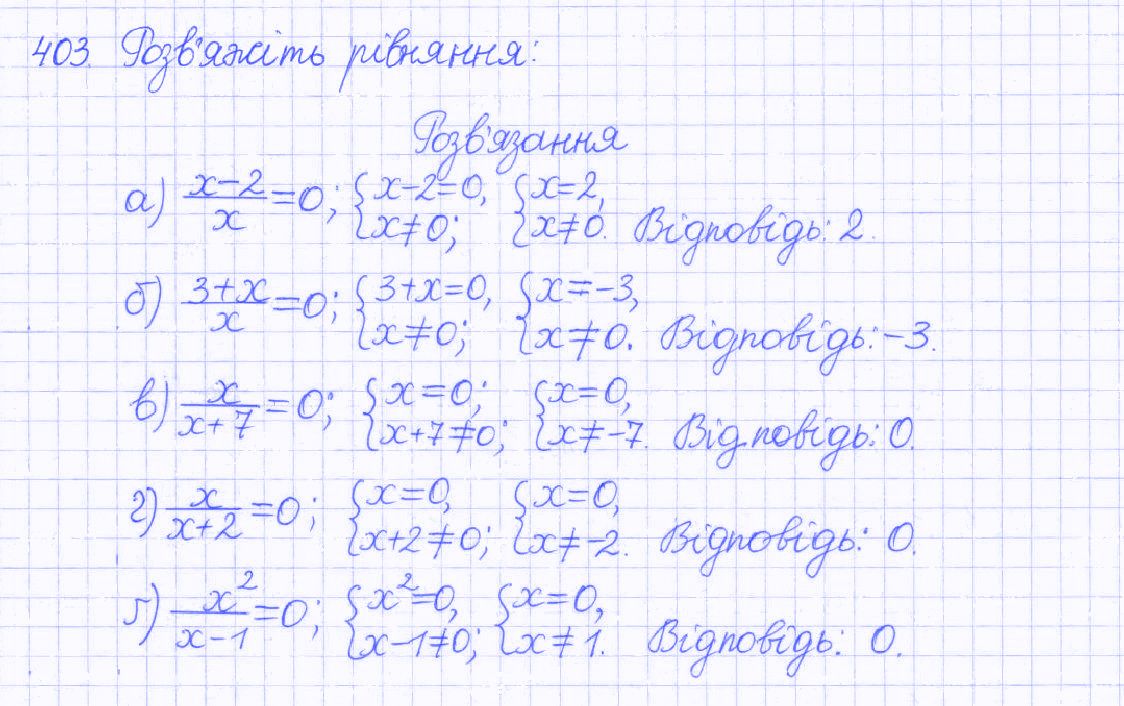 403. Розв'яжіть рівняння:
Розв'язання
а) \frac{x-2}{x}=0; {x-2=0, x≠0; {x=2, x≠0. Відповідь: 2.
б) \frac{3+x}{x}=0; {3+x=0, x≠0; {x=-3, x≠0. Відповідь: -3.
в) \frac{x}{x+7}=0; {x=0; x+7≠0; {x=0, x≠-7. Відповідь: 0.
г) \frac{x}{x+2}=0; {x=0, x+2≠0; {x=0, x≠-2. Відповідь: 0.
ґ) \frac{x^2}{x-1}=0; {x^2=0, x-1≠0; {x=0, x≠1. Відповідь: 0.